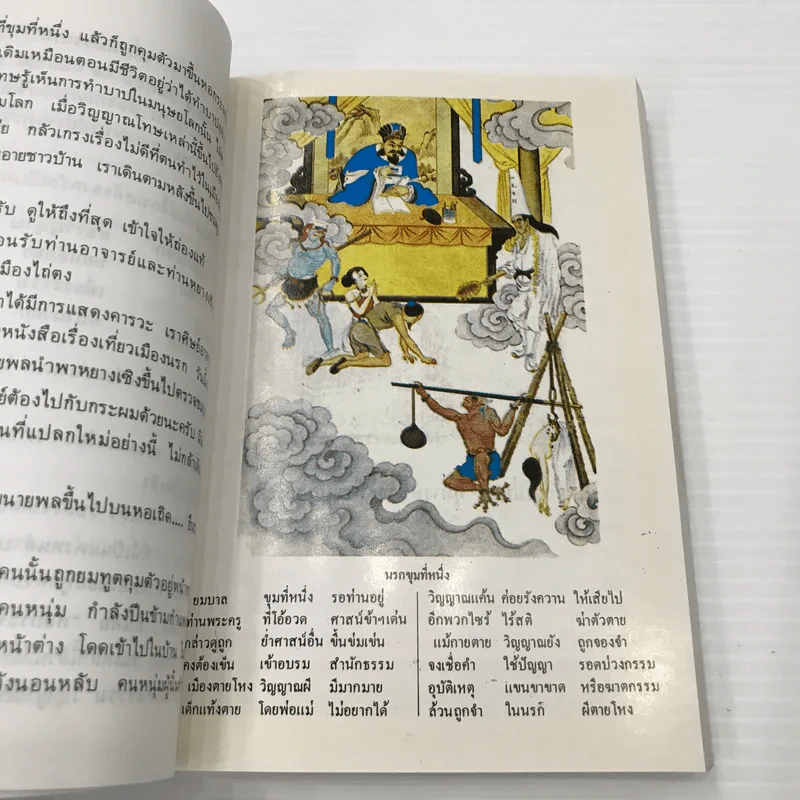 ที่ขุมที่หนึ่ง แล้วก็ถูกคุมตัวมาขึ้นหอกระจก
เดิมเหมือนตอนมีชีวิตอยู่ว่าได้ทำบาป
โทษรู้เห็นการทำบาปในมนุษยโลกนั้น
มโลก เมื่อวิญญาณโทษเหล่านี้ขึ้นไป
ย กลัวเกรงเรื่องไม่ดีที่ตนทำไว้ใน
อายชาวบ้าน เราเดินตามหลังขึ้นไป
รับ ดูให้ถึงที่สุด เข้าใจให้ถ่องแท้
อนรับท่านอาจารย์และท่านหยาง
เมืองไถ่ตง
ได้มีการแสดงคารวะ เราศิษย์
หนังสือเรื่องเที่ยวเมืองนรก วันนี้
ยพลนำพาหยางเซิงขึ้นไปตรวจ
ย์ต้องไปกับกระผมด้วยนะครับ
นที่แปลกใหม่อย่างนี้ ไม่กล้า
นายพลขึ้นไปบนหอเถิด....
คนนั้นถูกยมทูตคุมตัวอยู่หน้า
คนหนุ่ม กำลังปีนข้ามกำแพง
หน้าต่าง โดดเข้าไปในบ้าน
วังนอนหลับ คนหนุ่มผู้นั้น
นรกขุมที่หนึ่ง
ยมบาล ขุมที่หนึ่ง รอท่านอยู่ วิญญาณแค้น ค่อยรังควาน ให้เสียไป
ท่านพระครู ที่โอ้อวด ศาสน์ข้าฯเด่น อีกพวกไซร้ ไร้สติ ฆ่าตัวตาย
กล่าวดูถูก ย่ำศาสน์อื่น ขึ้นข่มเข่น แม้กายตาย วิญญาณยัง ถูกจองจำ
คงต้องเข็น เข้าอบรม สำนักธรรม จงเชื่อคำ ใช้ปัญญา รอดปวงกรรม
เมืองตายโหง วิญญาณผี มีมากมาย อุบัติเหตุ แขนขาขาด หรือฆาตกรรม
เด็กแท้งตาย โดยพ่อแม่ ไม่อยากได้ ล้วนถูกจำ ในนรก์ ผีตายโหง